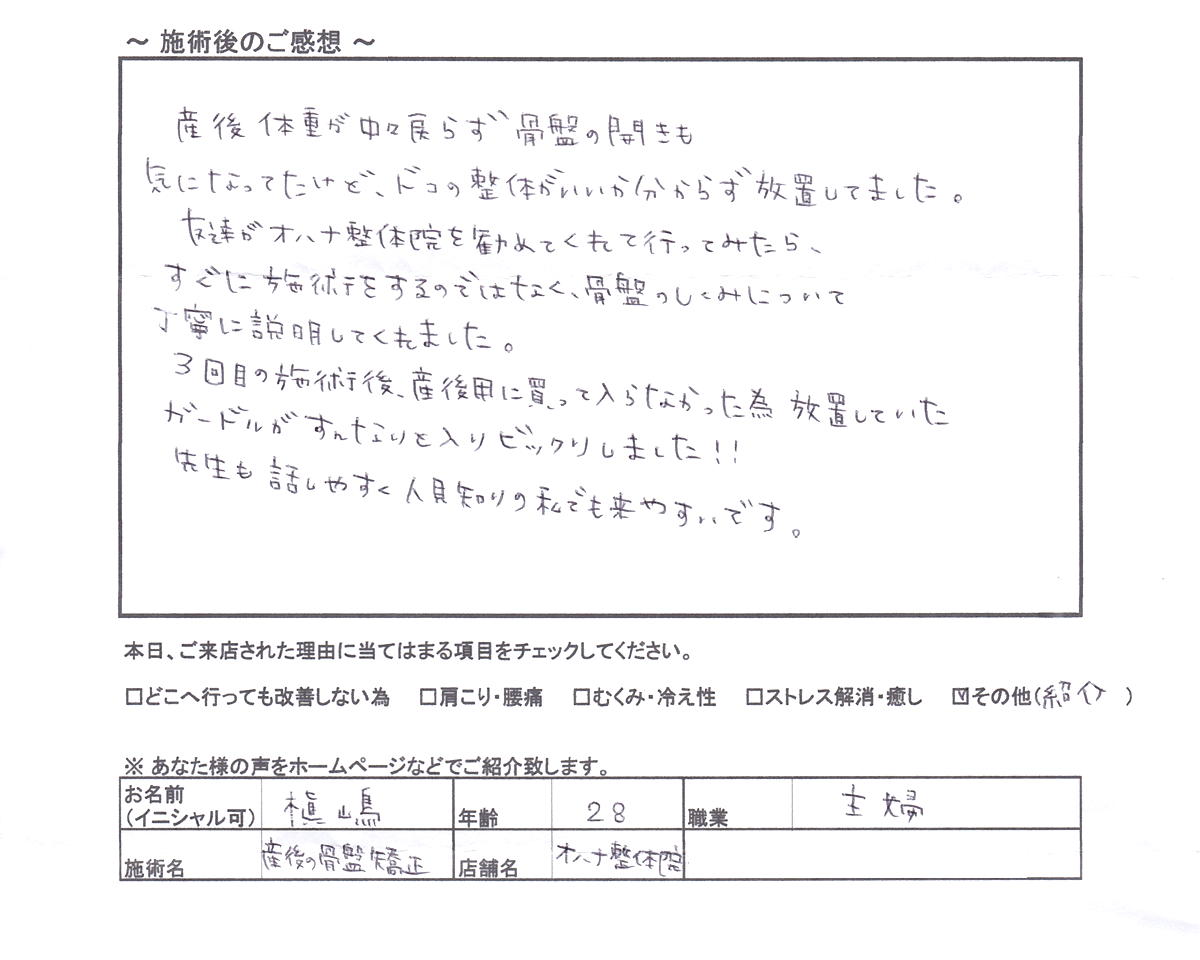 ～ 施術後のご感想 ～
産後体重が中々戻らず骨盤の開きも
気になってたけど、ドコの整体がいいか分からず放置してました。
友達がオハナ整体院を勧めてくれて行ってみたら、
すぐに施術をするのではなく、骨盤のしくみについて
丁寧に説明してくれました。
3回目の施術後、産後用に買って入らなかった為放置していた
ガードルがすんなりと入りビックリしました!!
先生も話しやすく人見知りの私でも来やすいです。
本日、ご来店された理由に当てはまる項目をチェックしてください。
□どこへ行っても改善しない為 □肩こり・腰痛 □むくみ・冷え性 □ストレス解消・癒し ☑その他(紹介 )
※ あなた様の声をホームページなどでご紹介致します。
お名前
(イニシャル可) 槙嶋 年齢 28 職業 主婦
施術名 産後の骨盤矯正 店舗名 オハナ整体院